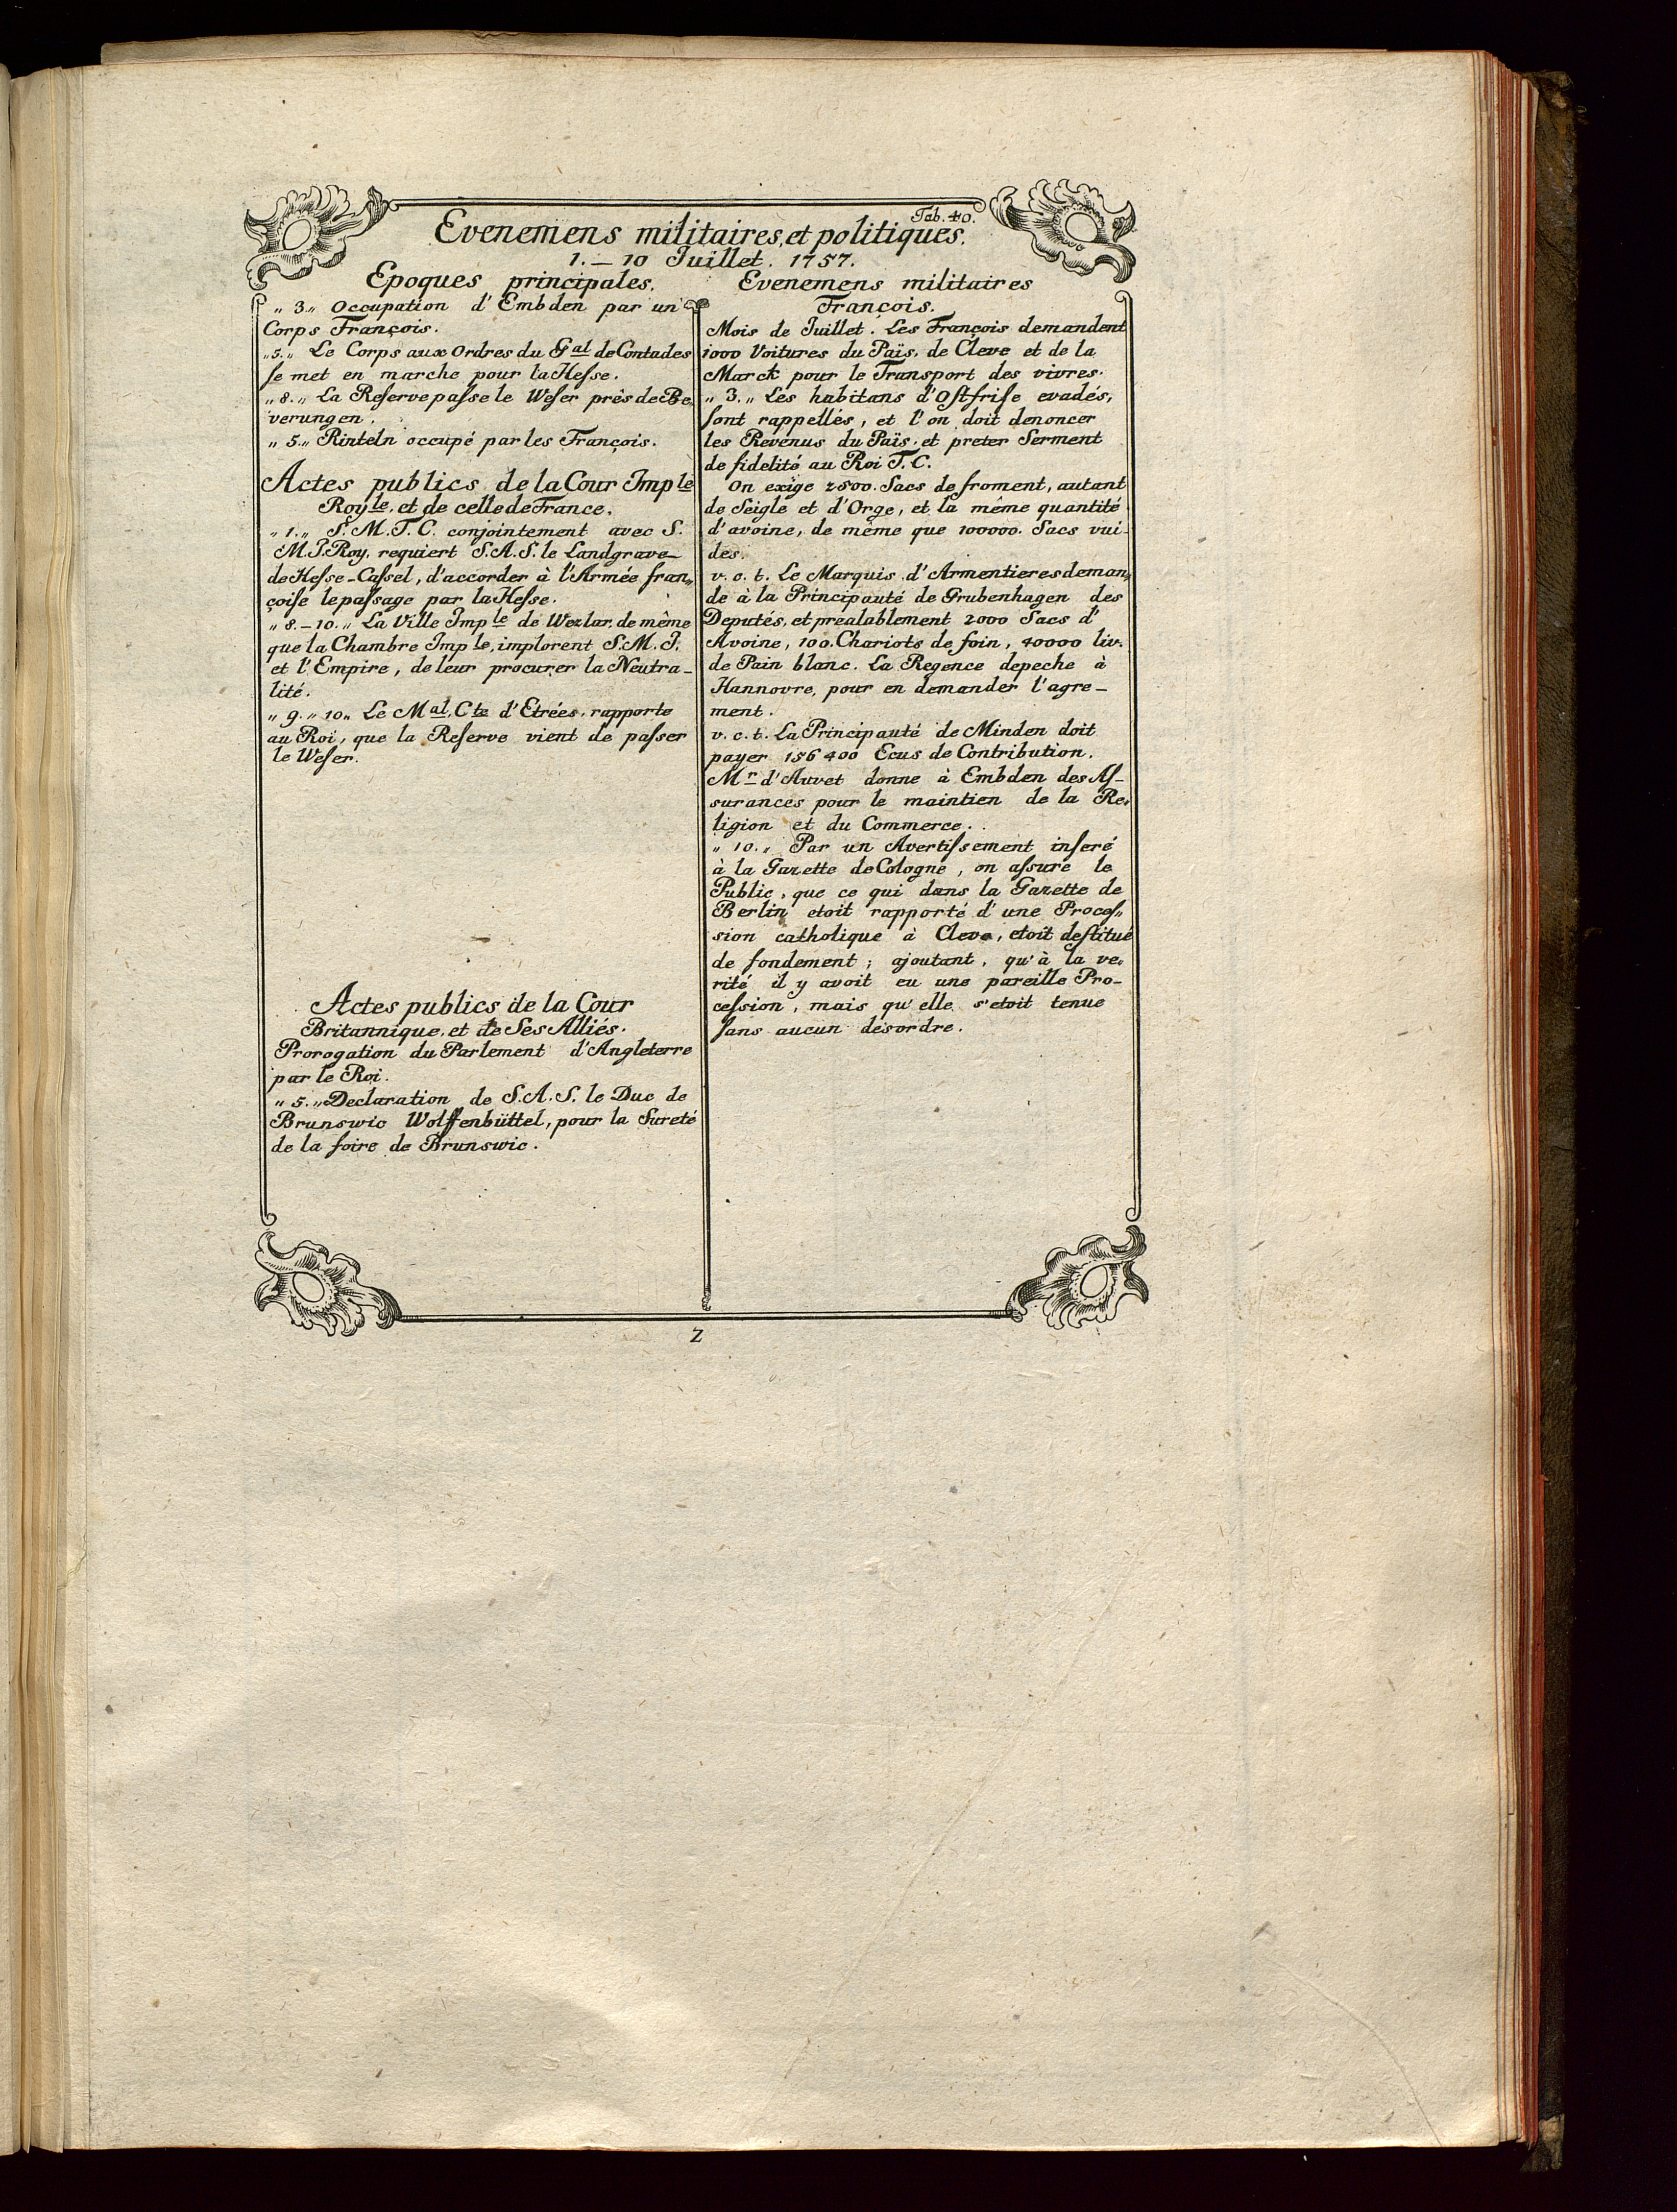 Tab. 40.
Evenemens militaires, et politiques.
1. — 10 Juillet. 1757.
Epoques principales.
„ 3.„ Occupation d'Embden par un
Corps François.
„ 5.„ Le Corps aux Ordres du Gal de Contades
se met en marche pour la Hesse.
„ 8.„ La Reserve passe le Weser près de Be„
verungen.
„ 5.„ Rinteln occupé par les François.
Actes publics de la Cour Imple
Royle. et de celle de France.
„ 1.„ S. M. T. C. conjointement avec S.
M. I. Roy. requiert S. A. S. le Landgrave
de Hesse-Cassel, d'accorder à l'Armée fran„
çoise le passage par la Hesse.
„ 8. — 10.„ La Ville Imple de Wezlar, de même
que la Chambre Imple, implorent S. M. I.
et l'Empire, de leur procurer la Neutra-
lité.
„ 9.„ 10„ Le Mal. Cte d'Etrées, rapporte
au Roi, que la Reserve vient de passer
le Weser.
Actes publics de la Cour
Britannique, et de Ses Alliés.
Prorogation du Parlement d'Angleterre
par le Roi.
„ 5.„ Declaration de S. A. S. le Duc de
Brunswic Wolffenbüttel, pour la Sureté
de la foire de Brunswic.
Evenemens militaires
François.
Mois de Juillet. Les François demandent
1000 Voitures du Païs, de Cleve et de la
Marck pour le Transport des vivres.
„ 3.„ Les habitans d'Ostfrise evadés,
sont rappellés, et l'on doit denoncer
les Revenus du Païs, et preter Serment
de fidelité au Roi T. C.
On exige 2800. Sacs de froment, autant
de Seigle et d'Orge, et la même quantité
d'avoine, de même que 100000. Sacs vui-
des.
v. c. t. Le Marquis d'Armentieres deman„
de à la Principauté de Grubenhagen des
Deputés, et prealablement 2000 Sacs d'
Avoine, 100. Chariots de foin, 40000 liv.
de Pain blanc. La Regence depeche à
Hannovre, pour en demander l'agre-
ment.
v. c. t. La Principauté de Minden doit
payer 156400 Ecus de Contribution.
Mr d'Auvet donne à Embden des As-
surances pour le maintien de la Re„
ligion et du Commerce.
„ 10.„ Par un Avertissement inseré
à la Gazette de Cologne, on assure le
Public, que ce qui dans la Gazette de
Berlin etoit rapporté d'une Proces„
sion catholique à Cleve, etoit destitué
de fondement; ajoutant, qu'à la ve„
rité il y avoit eu une pareille Pro-
cession, mais qu'elle s'etoit tenue
sans aucun desordre.
Z